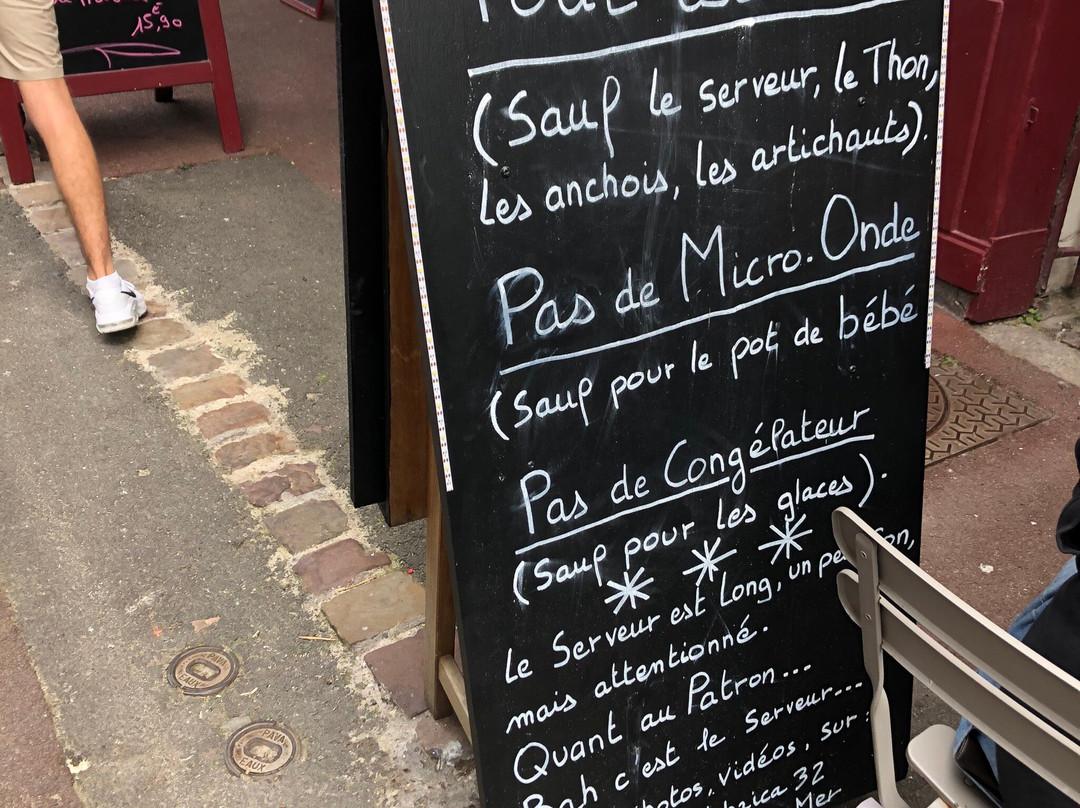 15,90€
(Sauf le serveur, le Thon,
les anchois, les artichauts).
Pas de Micro-Onde
(Sauf pour le pot de bébé
Pas de Congélateur
(Sauf pour les glaces).
le Serveur est long, un
mais attentionné.
Quant au Patron...
Bah c'est le Serveur...
photos, vidéos, sur :
32
Mer
PAVA
EAUX
EAUX